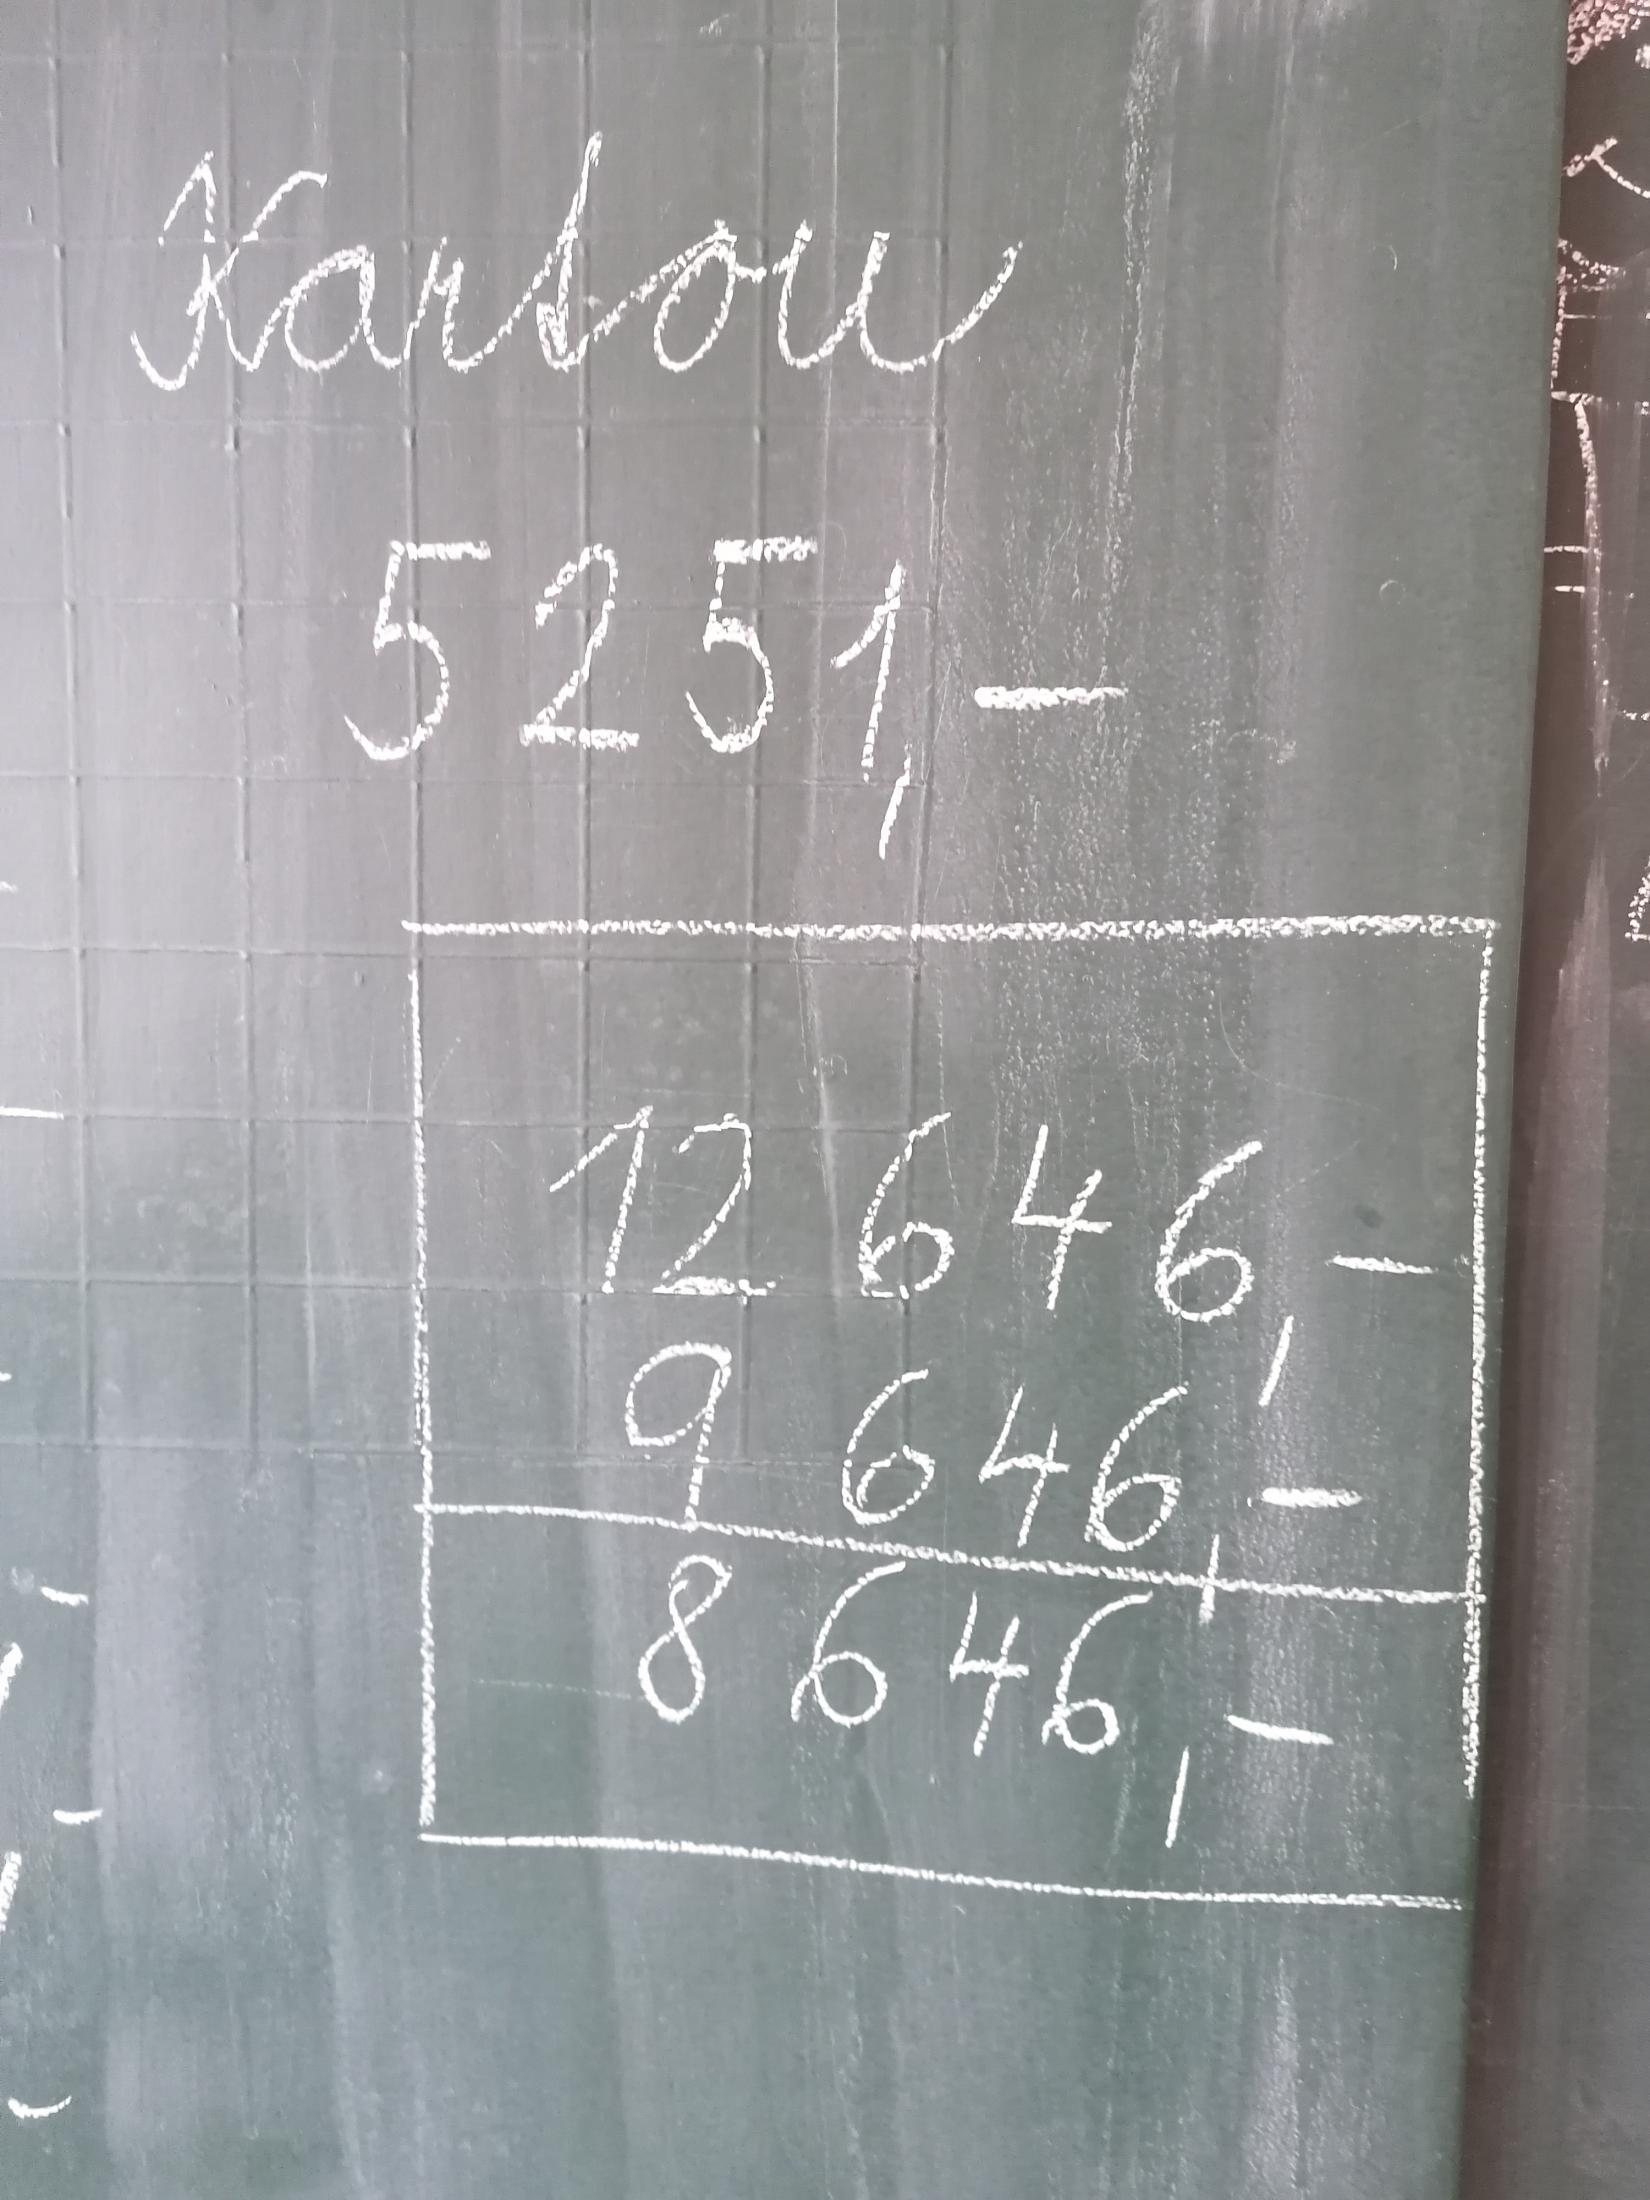 Kartou
5251,–
12 646,–
9 646,–
8 646,–